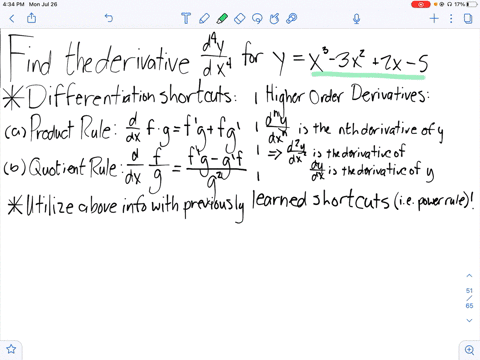 4:34 PM Sun Jul 26
17%
Find the derivative d⁴y/dx⁴ for y = x³-3x²+2x-5
* Differentiation shortcuts:
(a) Product Rule: d/dx f·g = f'g + fg'
(b) Quotient Rule: d/dx f/g = (f'g - g'f)/g²
Higher Order Derivatives:
dⁿy/dxⁿ is the nth derivative of y
⇒ d²y/dx² is the derivative of
dy/dx is the derivative of y
* Utilize above info with previously learned shortcuts (i.e. power rule)!
51
/
65